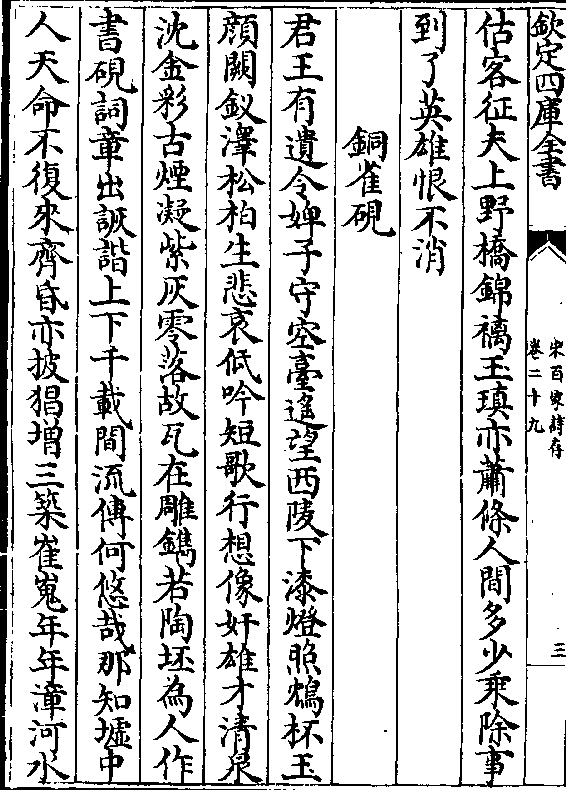 欽定四庫全書
宋百家詩存
卷二十九
三
估客征夫上野橋錦襦玉瑱亦蕭條人間多少乘除事
到了英雄恨不消
銅雀硯
君王有遺令婢子守空臺遙望西陵下漆燈照鴆杯玉
顔闕釵澤松柏生悲哀低吟短歌行想像奸雄才清泉
沈金彩古煙凝紫灰零落故瓦在雕鐫若陶坯為人作
書硯詞章出詼諧上下千載間流傳何悠哉那知墟中
人天命不復來齊昏亦披猖增三築崔嵬年年漳河水